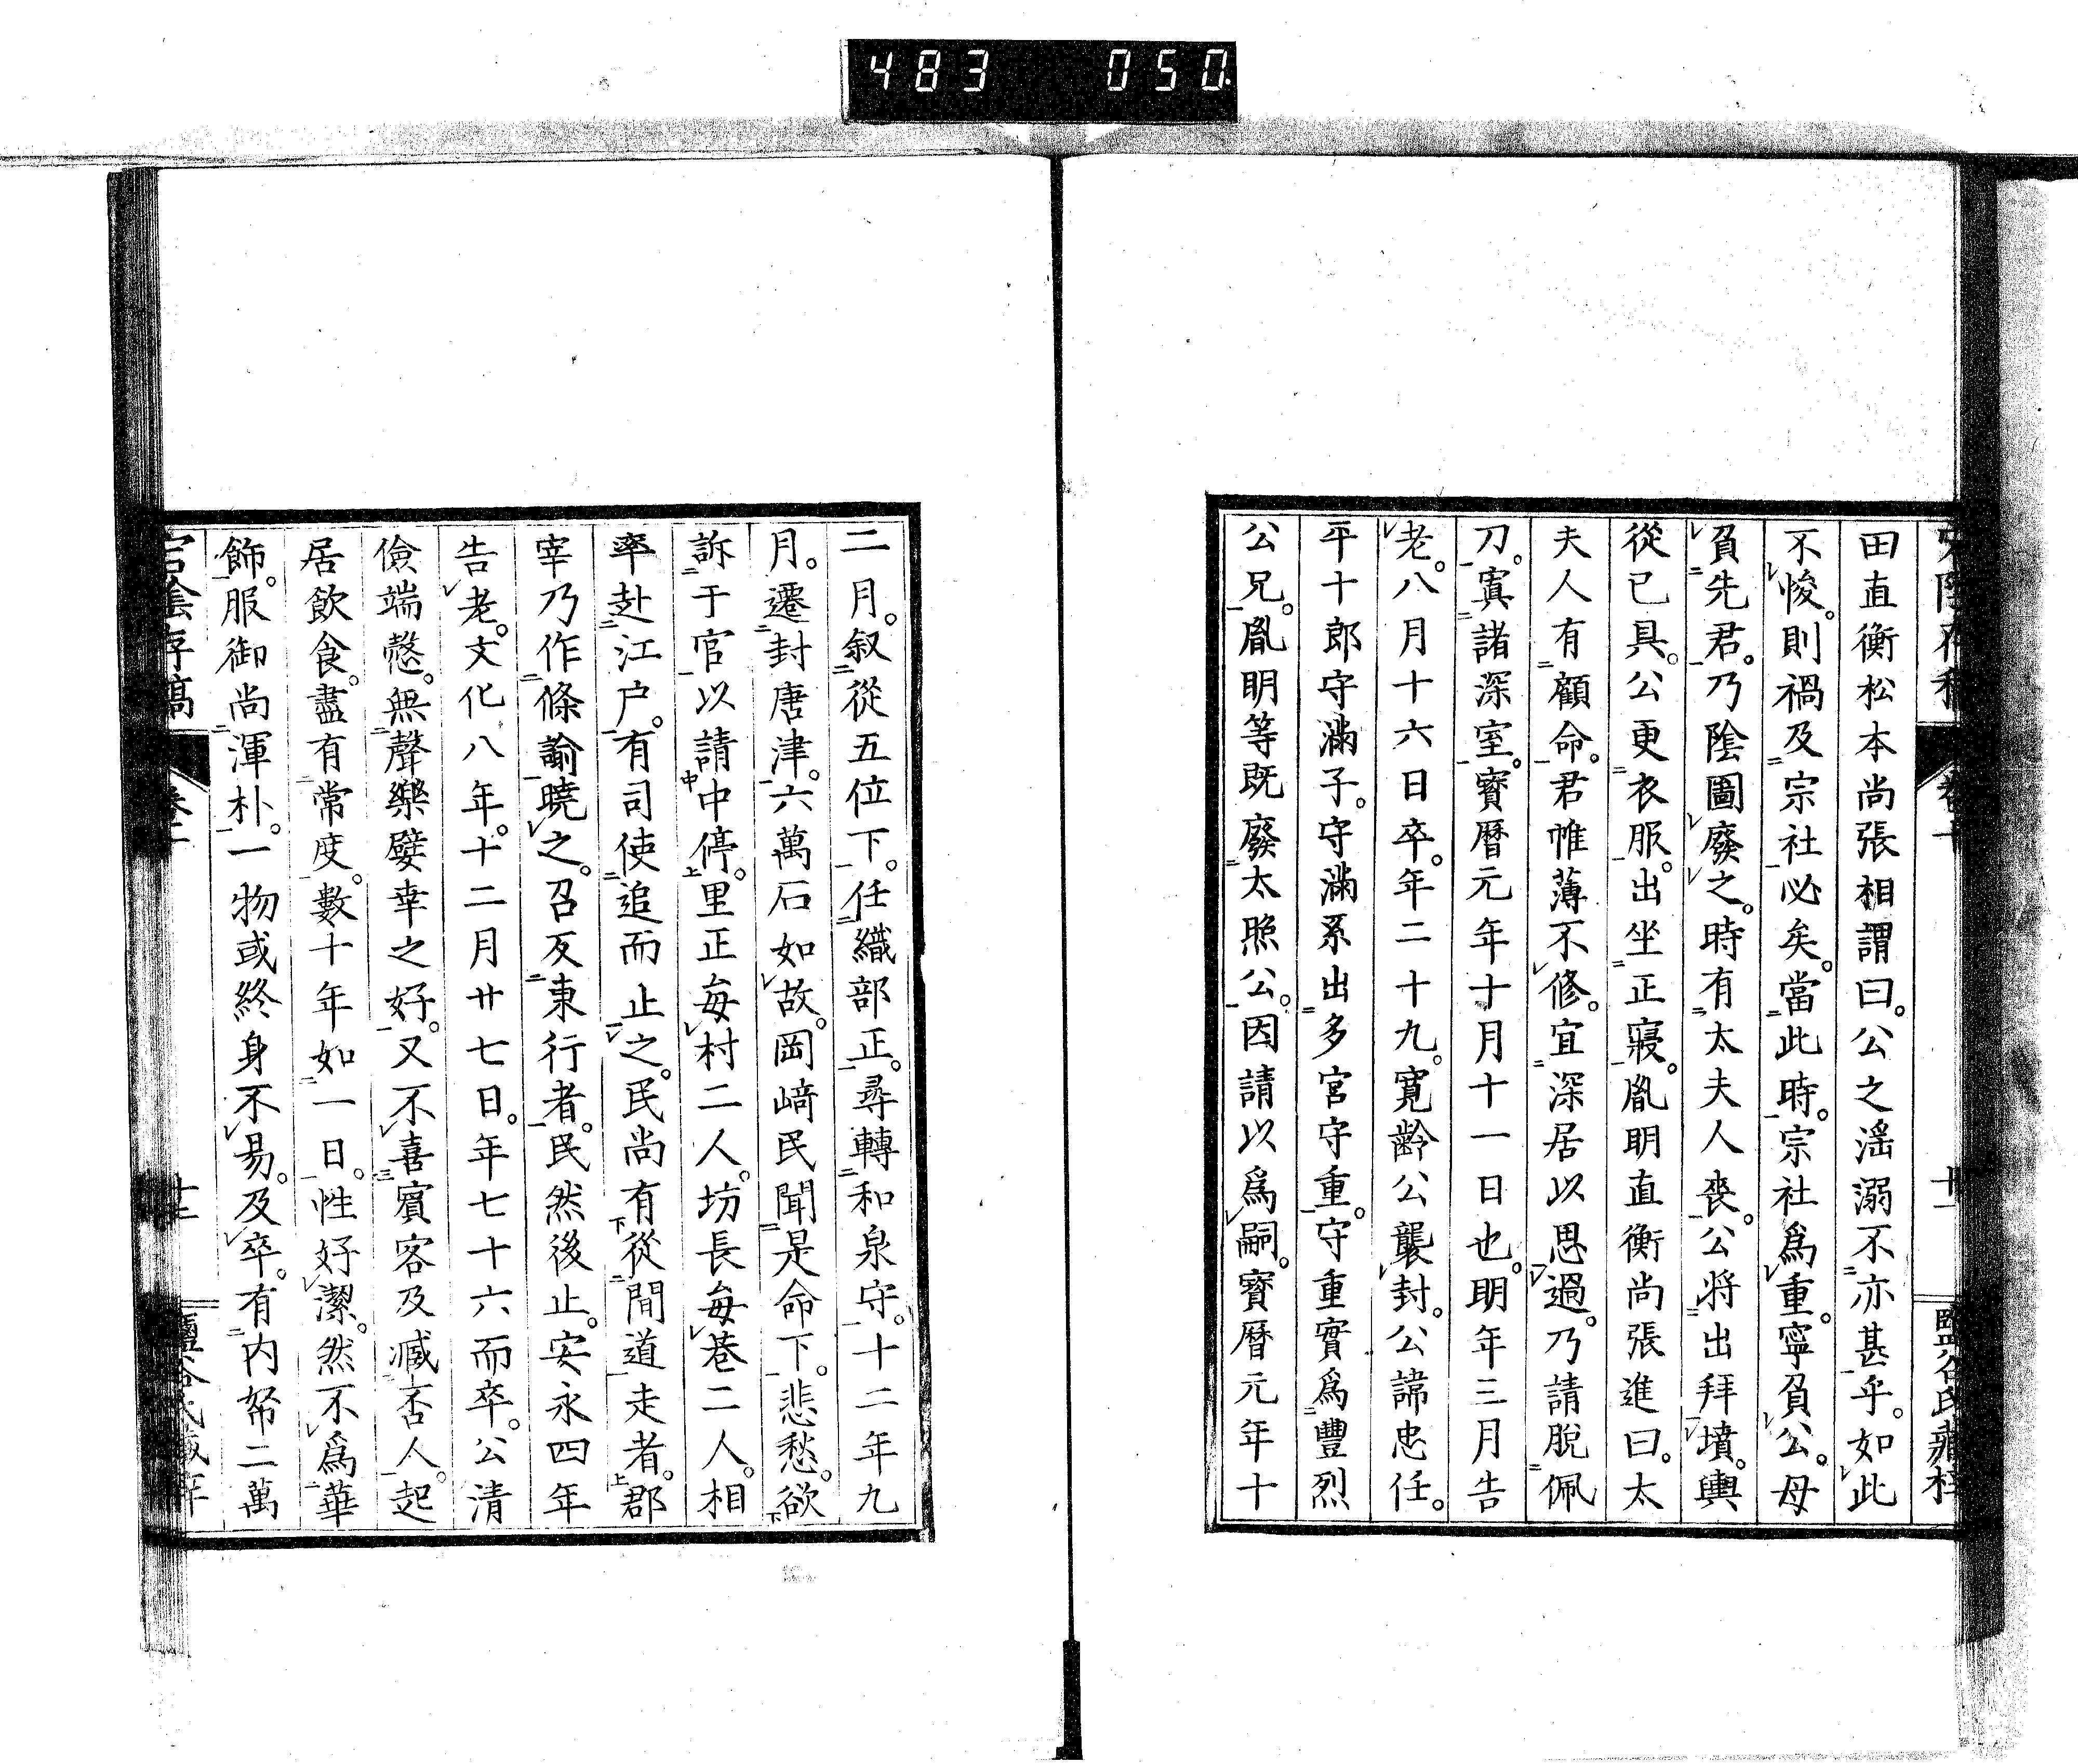 483 050
田直衡松本尚張相謂曰。公之滛溺不亦甚乎。如此
不悛。則禍及宗社必矣。當此時。宗社爲重。寧負公。母
負先君。乃陰圖廢之。時有太夫人喪。公將出拜墳。輿
從已具。公更衣服。出坐正寢。胤明直衡尚張進曰。太
夫人有顧命。君帷薄不修。宜深居以思過。乃請脫佩
刀。寘諸深室。寶曆元年十月十一日也。明年三月告
老。八月十六日卒。年二十九。寬齡公襲封。公諱忠任。
平十郎守滿子。守滿系出多宮守重。守重實爲豐烈
公兄。胤明等既廢太照公。因請以爲嗣。寶曆元年十
二月。叙從五位下。任織部正。尋轉和泉守。十二年九
月。遷封唐津。六萬石如故。岡﨑民聞是命下。悲愁。欲
訴于官以請中停。里正每村二人。坊長每巷二人。相
率赴江户。有司使追而止之。民尚有從間道走者。郡
宰乃作條諭曉之。召反東行者。民然後止。安永四年
告老。文化八年。十二月廿七日。年七十六而卒。公清
儉端愨。無聲樂嬖幸之好。又不喜賓客及臧否人。起
居飲食。盡有常度。數十年如一日。性好潔。然不爲華
飾。服御尚渾朴。一物或終身不易。及卒。有内帑二萬